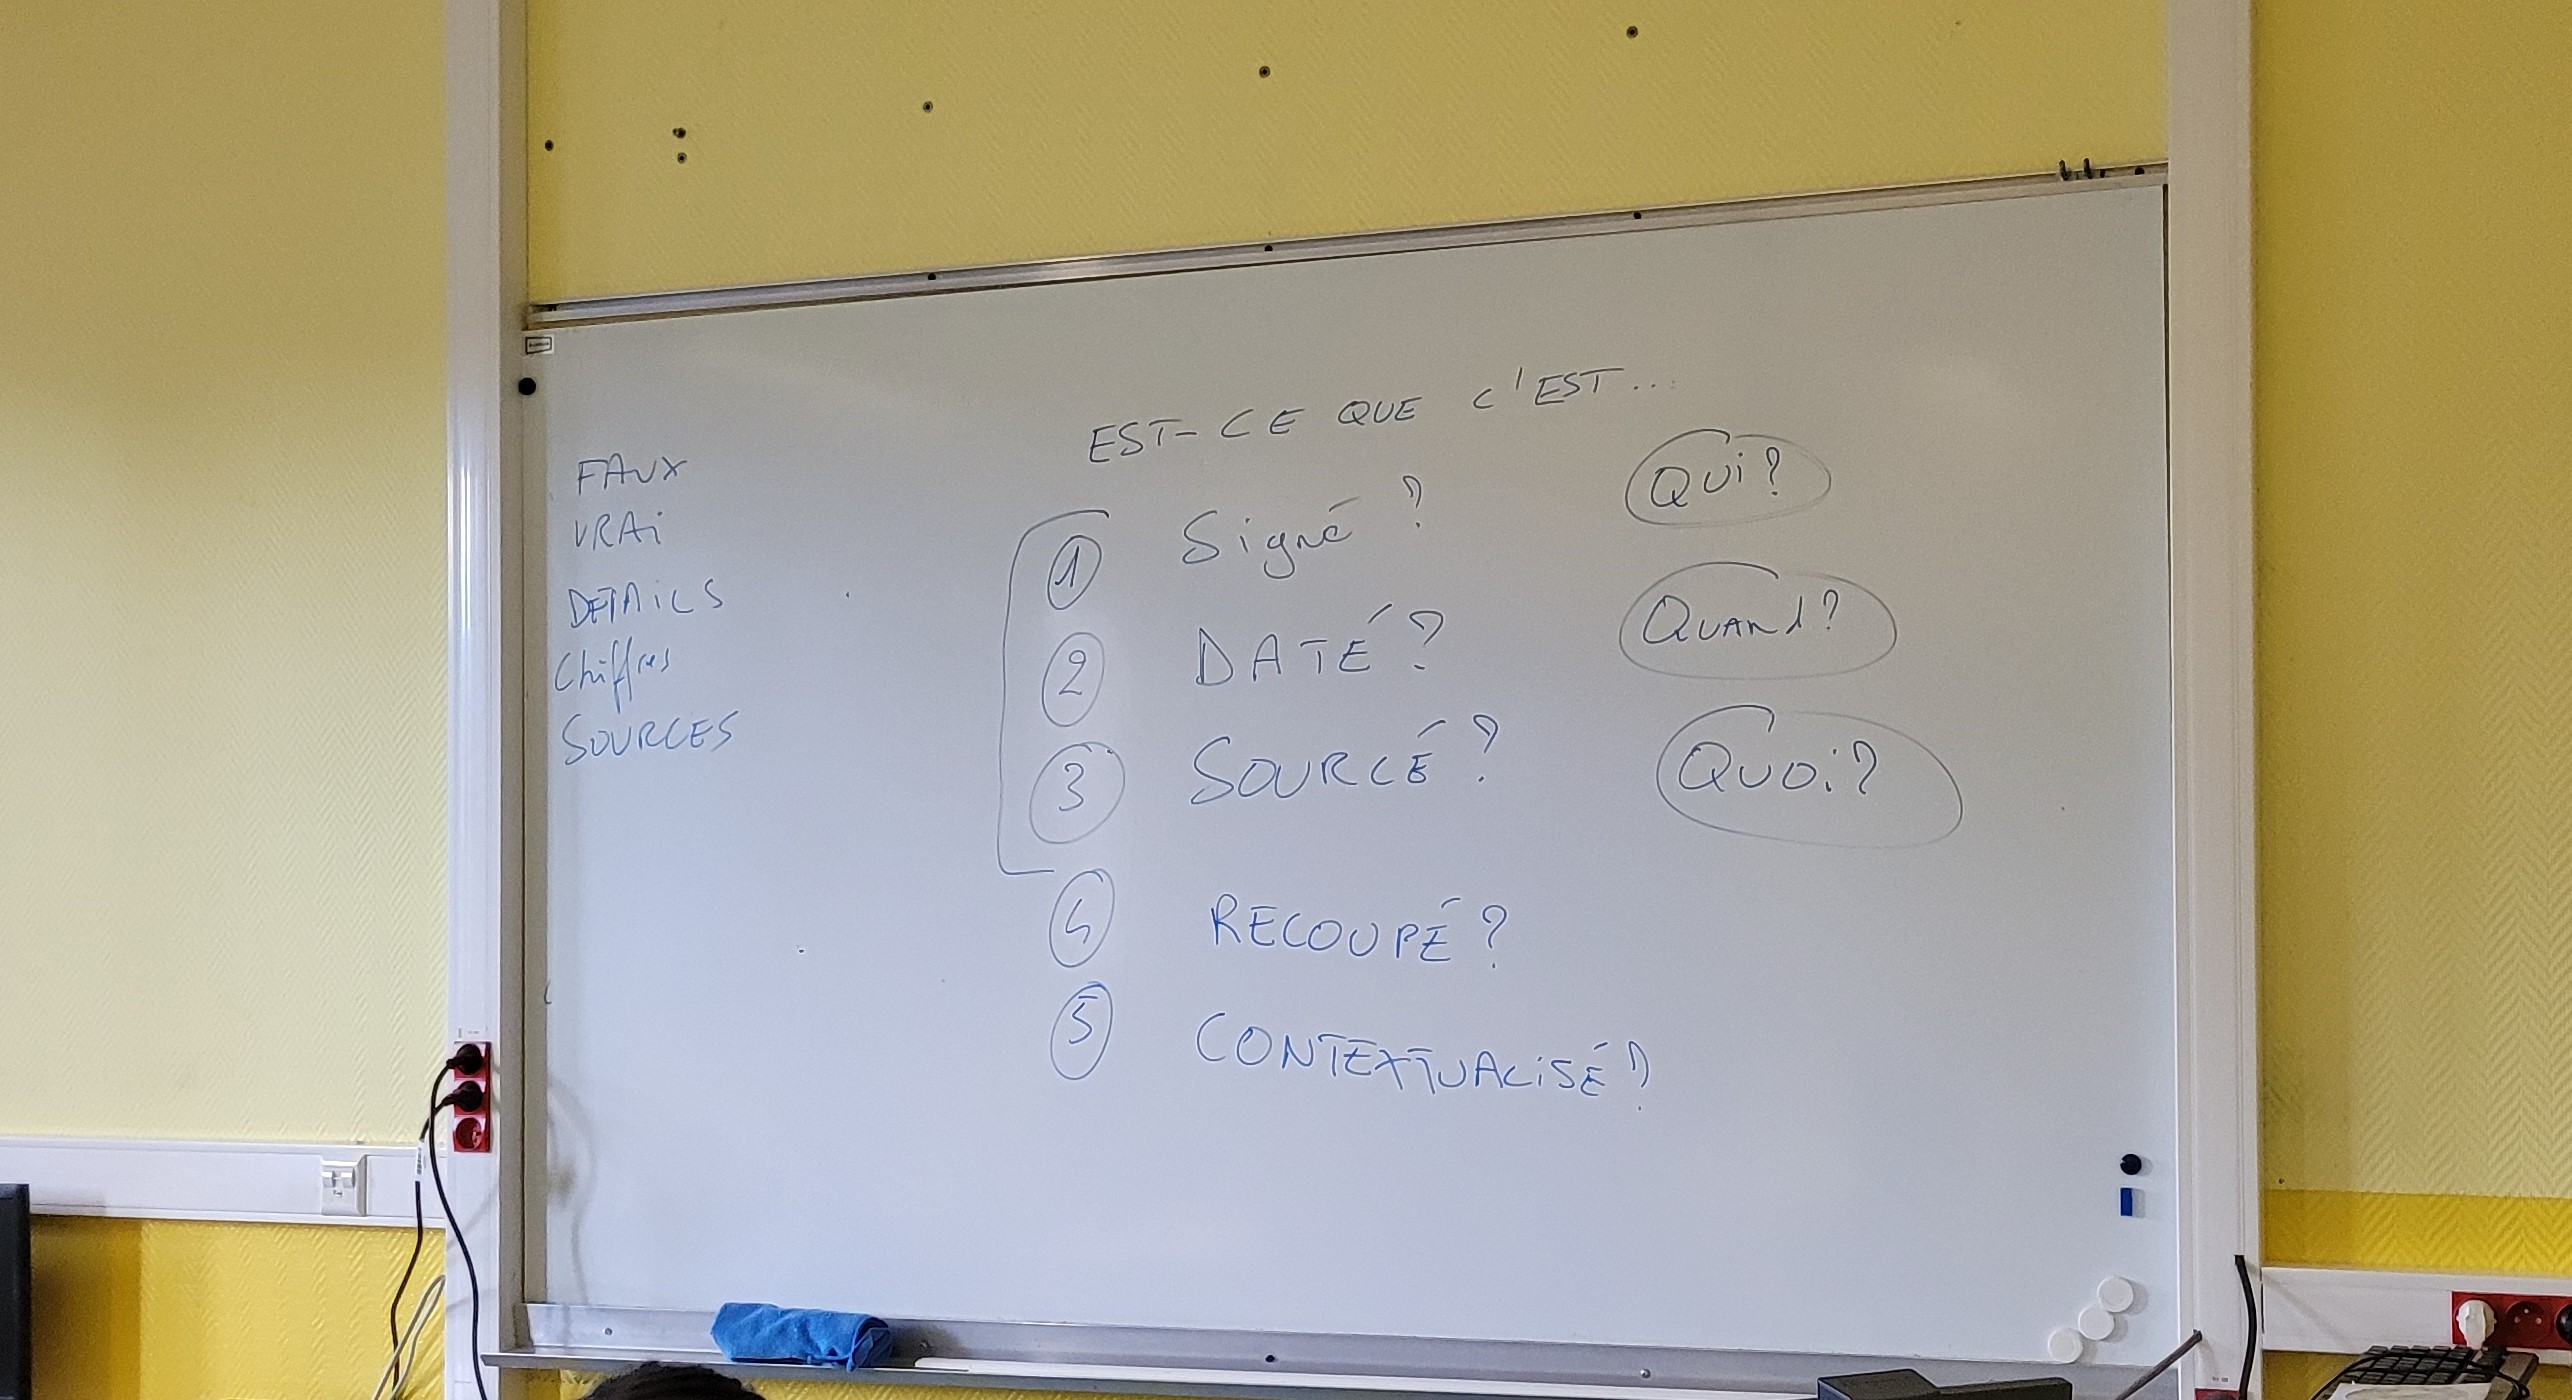 FAUX
VRAi
DETAiLS
Chiffres
SOURCES
EST-CE QUE C'EST...
1 Signé ? QUi ?
2 DATÉ ? QUANd ?
3 SOURCÉ ? QUOi ?
4 RECOUPÉ ?
5 CONTEXTUALiSÉ ?